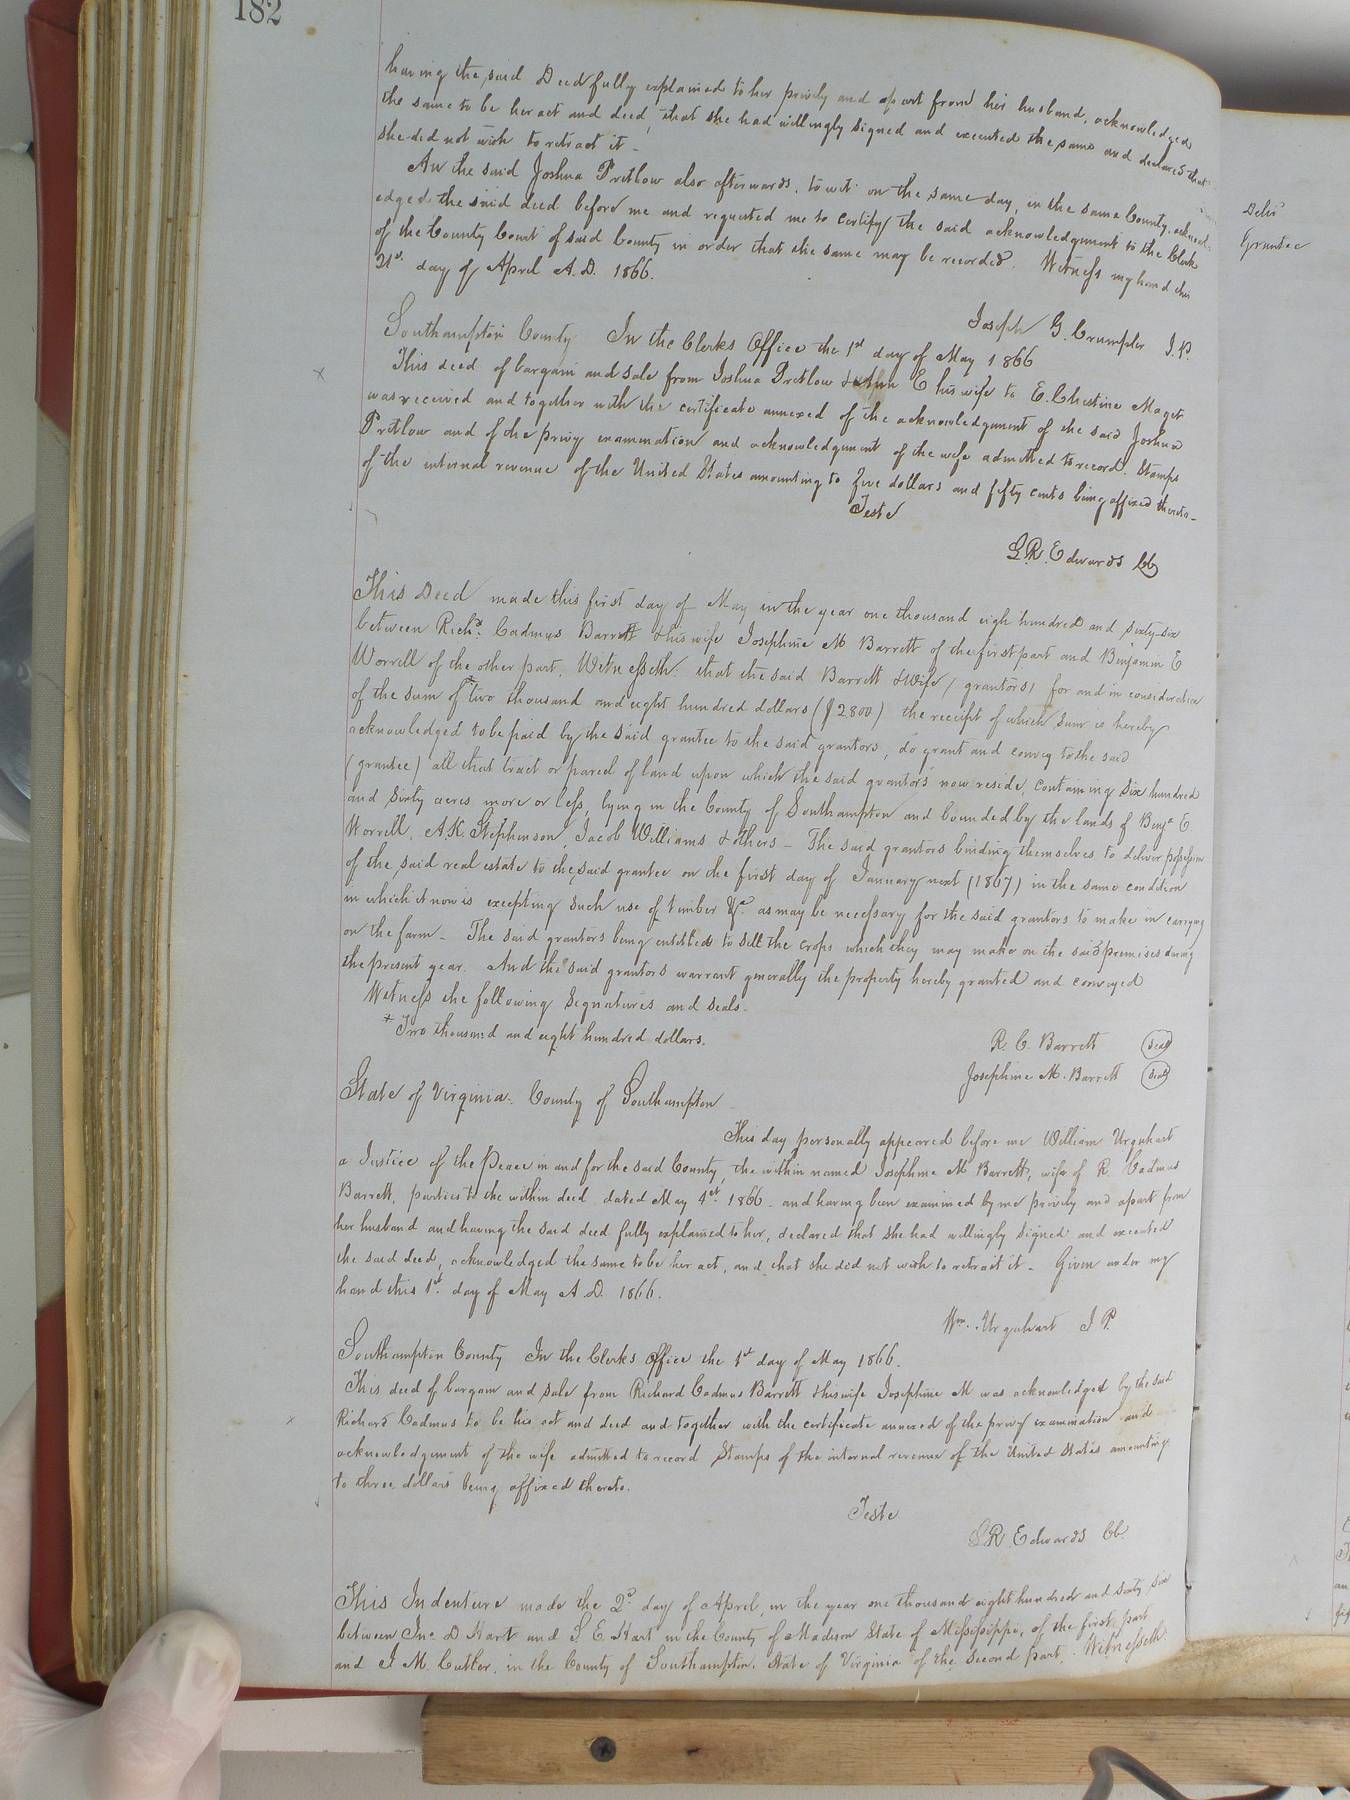 182
having the said Deed fully explained to her privily and apart from her husband, acknowledged
the same to be her act and deed, that she had willingly signed and executed the same and declared that
she did not wish to retract it -
An the said Joshua Pretlow also afterwards, to wit on the same day, in the same County, acknowl-
edged the said deed before me and requested me to certify the said acknowledgment to the Clerk
of the County Court of said County in order that the same may be recorded. Witness my hand this
21st day of April A.D. 1866.
Joseph G. Crumpler J.P.
Southampton County In the Clerks Office the 1st day of May 1866
This deed of bargain and sale from Joshua Pretlow & E his wife to E. Christine Maget
was received and together with the certificate annexed of the acknowledgment of the said Joshua
Pretlow and of the privy examination and acknowledgment of the wife admitted to record. Stamps
of the internal revenue of the United States amounting to five dollars and fifty cents being affixed thereto -
Teste
L.R. Edwards CC
This Deed made this first day of May in the year one thousand eigh hundred and sixty-six
between Richd. Cadmus Barrett & his wife Josephine M Barrett of the first part and Benjamin E
Worrell of the other part, Witnesseth: that the said Barrett & Wife (grantors) for and in consideration
of the sum of * two thousand and eight hundred dollars ($2800) the receipt of which sum is hereby
acknowledged to be paid by the said grantee to the said grantors, do grant and convey to the said
(grantee) all that tract or parcel of land upon which the said grantors now reside, containing six hundred
and sixty acres more or less, lying in the County of Southampton and bounded by the lands of Benja E
Worrell, A.K. Stephenson, Jacob Williams & others - The said grantors binding themselves to deliver possession
of the said real estate to the said grantee on the first day of January next (1867) in the same condition
in which it now is excepting such use of timber &c. as may be necessary for the said grantors to make in carrying
on the farm - The said grantors being entitled to sell the crops which they may make on the said premises during
the present year. And the said grantors warrant generally the property hereby granted and conveyed
Witness the following signatures and seals.
* Two thousand and eight hundred dollars.
R. C. Barrett Seal
Josephine M. Barrett Seal
State of Virginia: County of Southampton
This day personally appeared before me William Urquhart
a Justice of the Peace in and for the said County, the within named Josephine M Barrett, wife of R. Cadmus
Barrett, parties to the within deed dated May 4th 1866 - and having been examined by me privily and apart from
her husband and having the said deed fully explained to her, declared that she had willingly signed and executed
the said deed, acknowledged the same to be her act, and that she did not wish to retract it - Given under my
hand this 1st day of May A.D. 1866.
Wm. Urquhart J P.
Southampton County In the Clerks Office the 1st day of May 1866.
This deed of bargain and sale from Richard Cadmus Barrett & his wife Josephine M was acknowledged by the said
Richard Cadmus to be his act and deed and together with the certificate annexed of the privy examination and
acknowledgement of the wife admitted to record Stamps of the internal revenue of the United States amounting
to three dollars being affixed thereto.
Teste
L.R. Edwards CC
This Indenture made the 2d day of April, in the year one thousand eight hundred and sixty six
between Jno D Hart and S. E Hart in the County of Madison State of Mississippi, of the first part
and J M. Cutler, in the County of Southampton. State of Virginia of the second part. Witnesseth
Delivd
Grantee